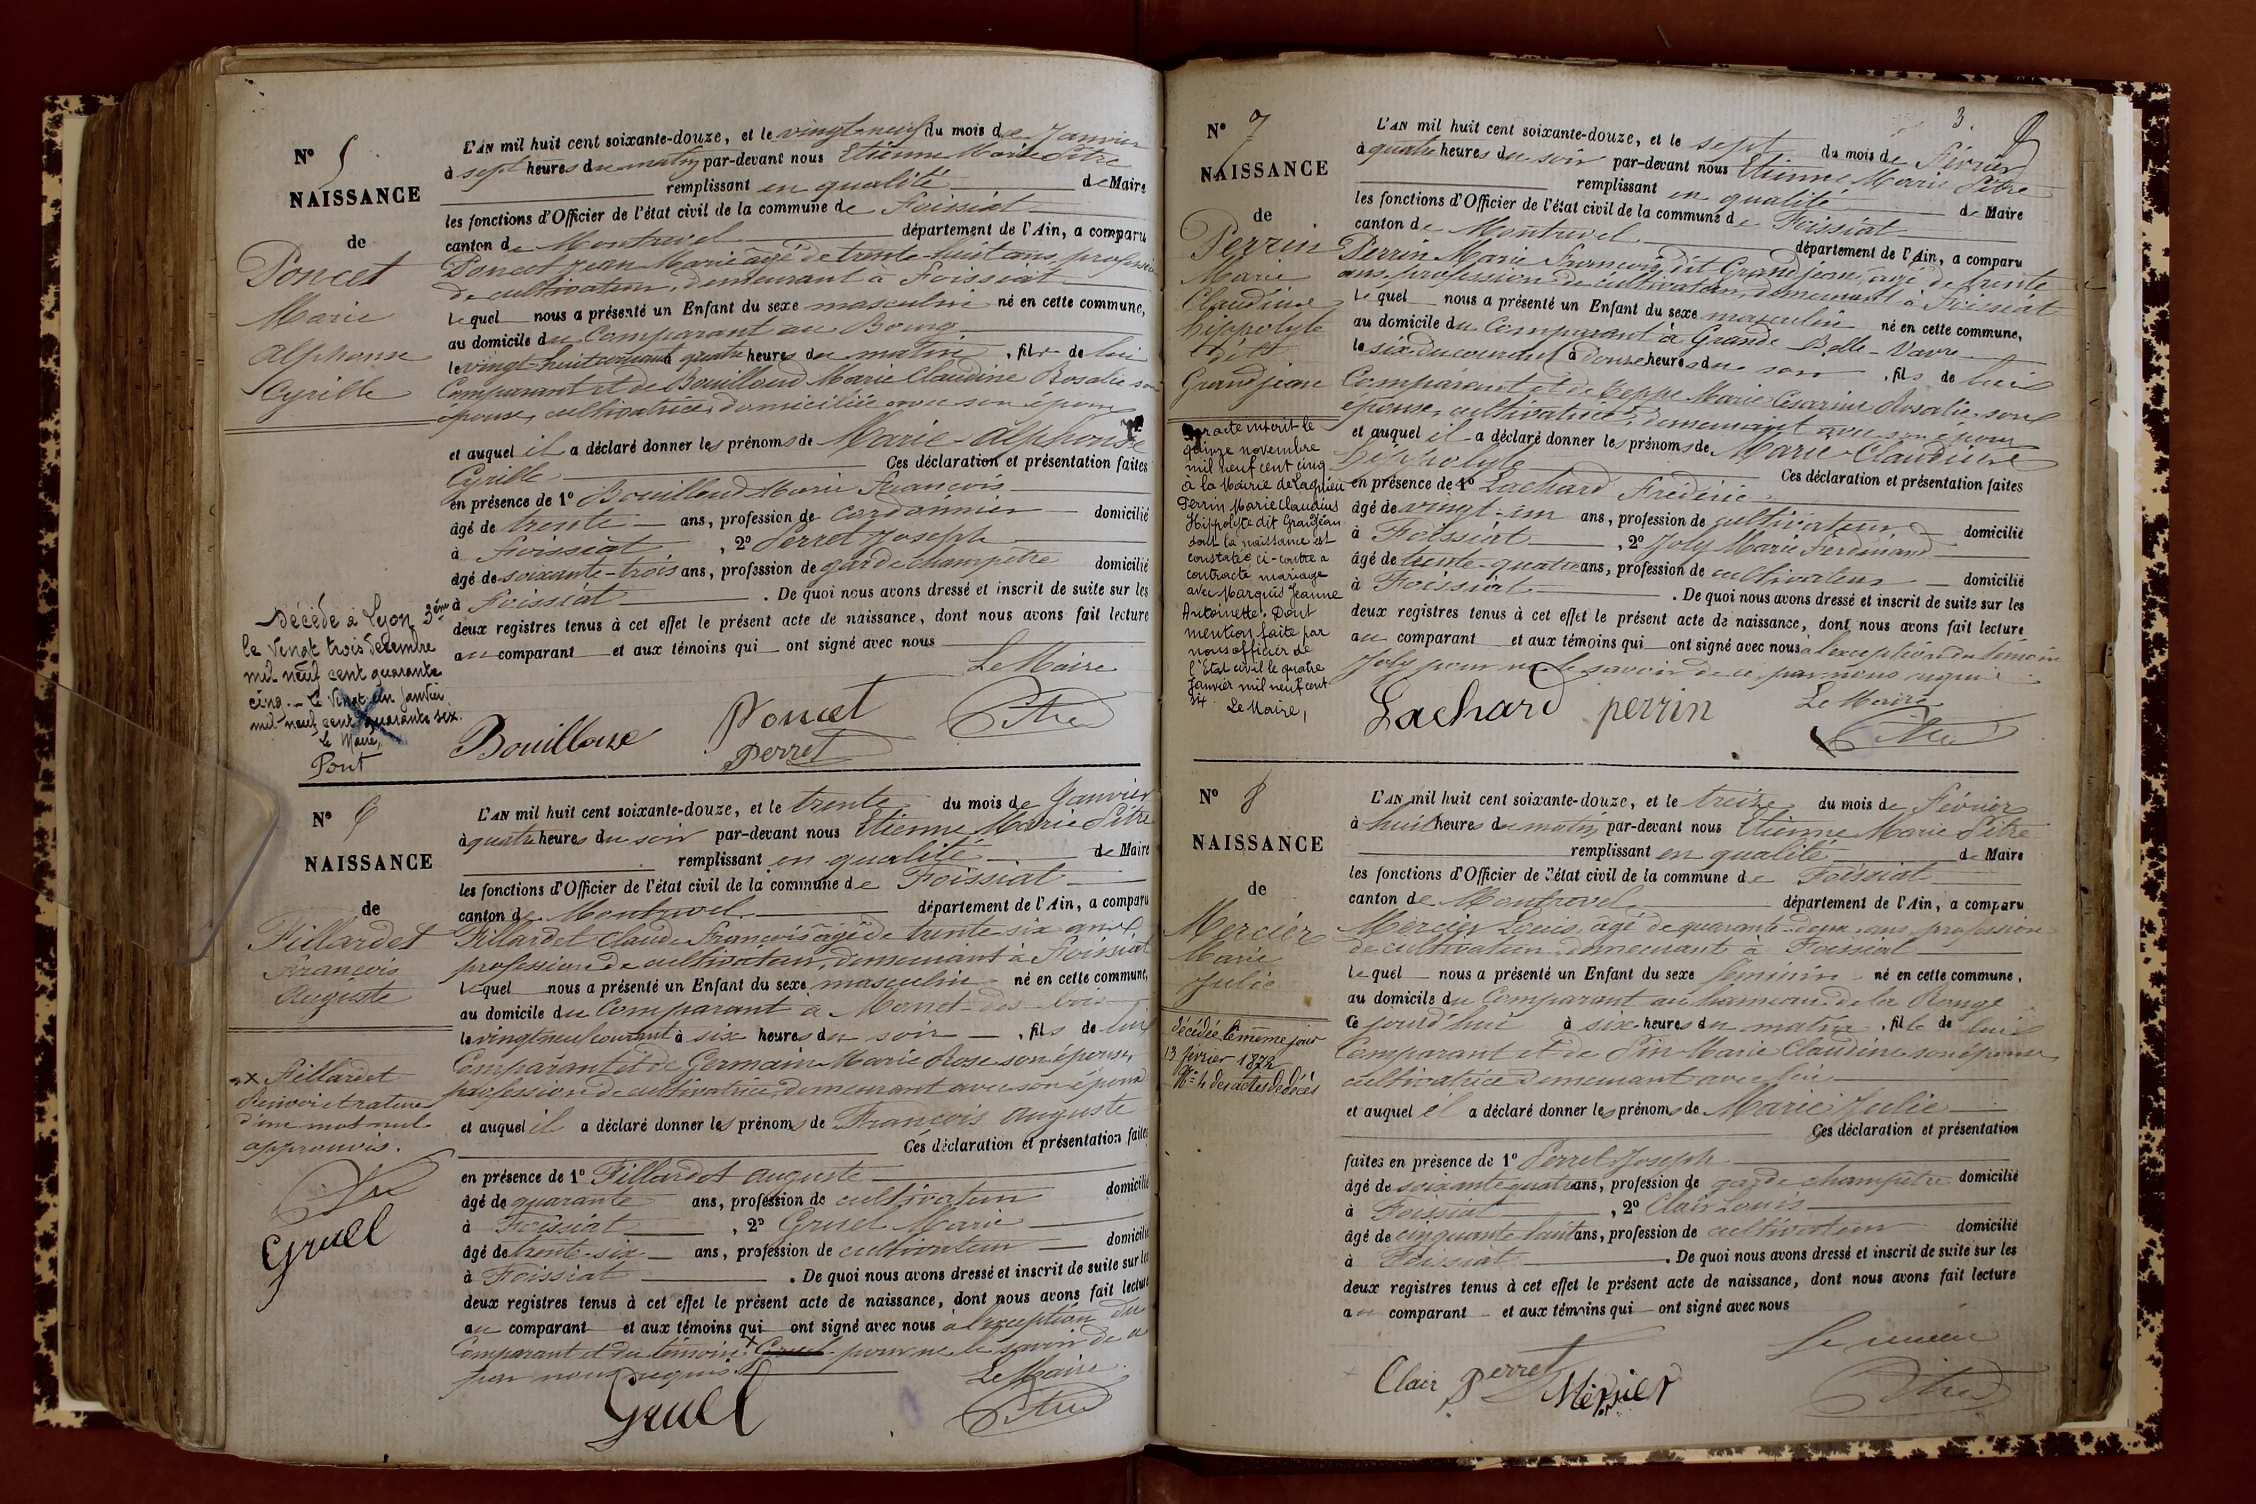 N° 5
NAISSANCE
de
Poncet
Marie
Alphonse
Cyrille
Décédé à Lyon 3ème
le vingt trois décembre
mil neuf cent quarante
cinq. - Le vingt un Janvier
mil neuf cent quarante six.
Le Maire,
Pont
L'AN mil huit cent soixante-douze, et le vingt-neuf du mois de Janvier
à sept heures du matin par-devant nous Etienne Marie Pitre
remplissant en qualité de Maire
les fonctions d'Officier de l'état civil de la commune de Foissiat
canton de Montrevel département de l'Ain, a comparu
Poncet Jean Marie âgé de trente-huit ans, profession
de cultivateur, demeurant à Foissiat
Lequel nous a présenté un Enfant du sexe masculin né en cette commune,
au domicile du Comparant au Bourg
le vingt-huit courant à quatre heures du matin, fils de lui
Comparant et de Bouilloud Marie Claudine Rosalie son
épouse, cultivatrice, domiciliée avec son époux
et auquel il a déclaré donner les prénoms de Marie-Alphonse
Cyrille Ces déclaration et présentation faites
en présence de 1° Bouilloud Marie François
âgé de trente ans, profession de cordonnier domicilié
à Foissiat, 2° Perret Joseph
âgé de soixante-trois ans, profession de garde champêtre domicilié
à Foissiat. De quoi nous avons dressé et inscrit de suite sur les
deux registres tenus à cet effet le présent acte de naissance, dont nous avons fait lecture
au comparant et aux témoins qui ont signé avec nous
Le Maire
Bouilloux Poncet Pitre
Perret
N° 6
NAISSANCE
de
Fillardet
François
Auguste
x Fillardet
Renvoi et rature
d'un mot nul
approuvés.
Gruel
L'AN mil huit cent soixante-douze, et le trente du mois de Janvier
à quatre heures du soir par-devant nous Etienne Marie Pitre
remplissant en qualité de Maire
les fonctions d'Officier de l'état civil de la commune de Foissiat
canton de Montrevel département de l'Ain, a comparu
Fillardet Claude François âgé de trente six ans
profession de cultivateur, demeurant à Foissiat
Lequel nous a présenté un Enfant du sexe masculin né en cette commune,
au domicile du Comparant à
le vingt neuf courant à six heures du soir, fils de lui
Comparant et de Germain Marie Rose son épouse,
profession de cultivatrice, demeurant avec son époux
et auquel il a déclaré donner les prénoms de François Auguste
Ces déclaration et présentation faites
en présence de 1° Fillardet Auguste
âgé de quarante ans, profession de cultivateur domicilié
à Foissiat, 2° Gruel Marie
âgé de trente-six ans, profession de cultivateur domicilié
à Foissiat. De quoi nous avons dressé et inscrit de suite sur les
deux registres tenus à cet effet le présent acte de naissance, dont nous avons fait lecture
au comparant et aux témoins qui ont signé avec nous à l'exception du
Comparant et du témoin x Gruel pour ne le savoir de ce
par nous requis
Le Maire
Gruel Pitre
3.
N° 7
NAISSANCE
de
Perrin
Marie
Claudius
hippolyte
dit
Grandjean
Par acte inscrit le
quinze novembre
mil neuf cent cinq
à la Mairie de Lagnieu
Perrin Marie Claudius
Hippolyte dit Grandjean
dont la naissance est
constatée ci-contre a
contracté mariage
avec Marquis Jeanne
Antoinette. Dont
mention faite par
nous officier de
l'Etat civil le quatre
Janvier mil neuf cent
six. Le Maire,
L'AN mil huit cent soixante-douze, et le sept du mois de Février
à quatre heures du soir par-devant nous Etienne Marie Pitre
remplissant en qualité de Maire
les fonctions d'Officier de l'état civil de la commune de Foissiat
canton de Montrevel département de l'Ain, a comparu
Perrin Marie François dit Grandjean, âgé de trente
ans, profession de cultivateur, demeurant à Foissiat
Lequel nous a présenté un Enfant du sexe masculin né en cette commune,
au domicile du Comparant à Grande Belle-Vavre
le six du courant à douze heures du soir, fils de lui
Comparant et de Teppe Marie Césarine Rosalie son
épouse, cultivatrice, demeurant avec son époux
et auquel il a déclaré donner les prénoms de Marie-Claudius
hippolyte Ces déclaration et présentation faites
en présence de 1° Lachard Frédéric
âgé de vingt-un ans, profession de cultivateur domicilié
à Foissiat, 2° Joly Marie Ferdinand
âgé de trente-quatre ans, profession de cultivateur domicilié
à Foissiat. De quoi nous avons dressé et inscrit de suite sur les
deux registres tenus à cet effet le présent acte de naissance, dont nous avons fait lecture
au comparant et aux témoins qui ont signé avec nous à l'exception du témoin
Joly pour ne le savoir de ce par nous requis
Le Maire
Lachard perrin Pitre
N° 8
NAISSANCE
de
Mercier
Marie
Julie
décédée le même jour
13 février 1872
N° 4 des actes de décès
L'AN mil huit cent soixante-douze, et le treize du mois de Février
à huit heures du matin par-devant nous Etienne Marie Pitre
remplissant en qualité de Maire
les fonctions d'Officier de l'état civil de la commune de Foissiat
canton de Montrevel département de l'Ain, a comparu
Mercier Louis, âgé de quarante-deux ans, profession
de cultivateur, demeurant à Foissiat
Lequel nous a présenté un Enfant du sexe féminin né en cette commune,
au domicile du Comparant au hameau de la Rouge
Ce jourd'hui à six heures du matin, fille de lui
Comparant et de Pin Marie Claudine son épouse
cultivatrice demeurant avec lui
et auquel il a déclaré donner les prénoms de Marie Julie
Ces déclaration et présentation
faites en présence de 1° Perret Joseph
âgé de soixante quatre ans, profession de garde champêtre domicilié
à Foissiat, 2° Clair Louis
âgé de cinquante huit ans, profession de cultivateur domicilié
à Foissiat. De quoi nous avons dressé et inscrit de suite sur les
deux registres tenus à cet effet le présent acte de naissance, dont nous avons fait lecture
au comparant et aux témoins qui ont signé avec nous
Le maire
Clair Perret Mercier Pitre